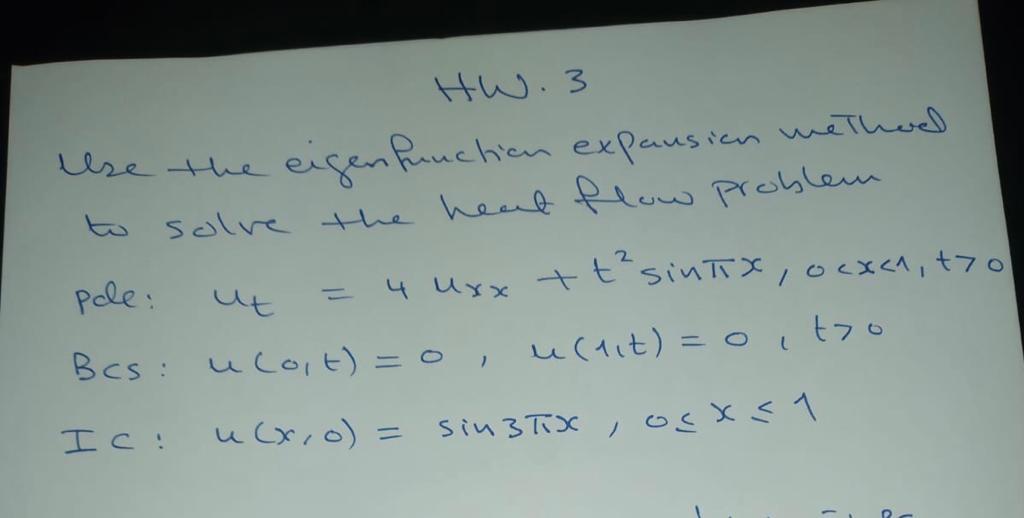 HW. 3
Use the eigenfunction expansion method
to solve the heat flow problem
pde: u_t = 4 u_xx + t² sin πx, 0<x<1, t>0
Bcs: u(0,t) = 0, u(1,t) = 0, t>0
Ic: u(x,0) = sin 3πx, 0 ≤ x ≤ 1